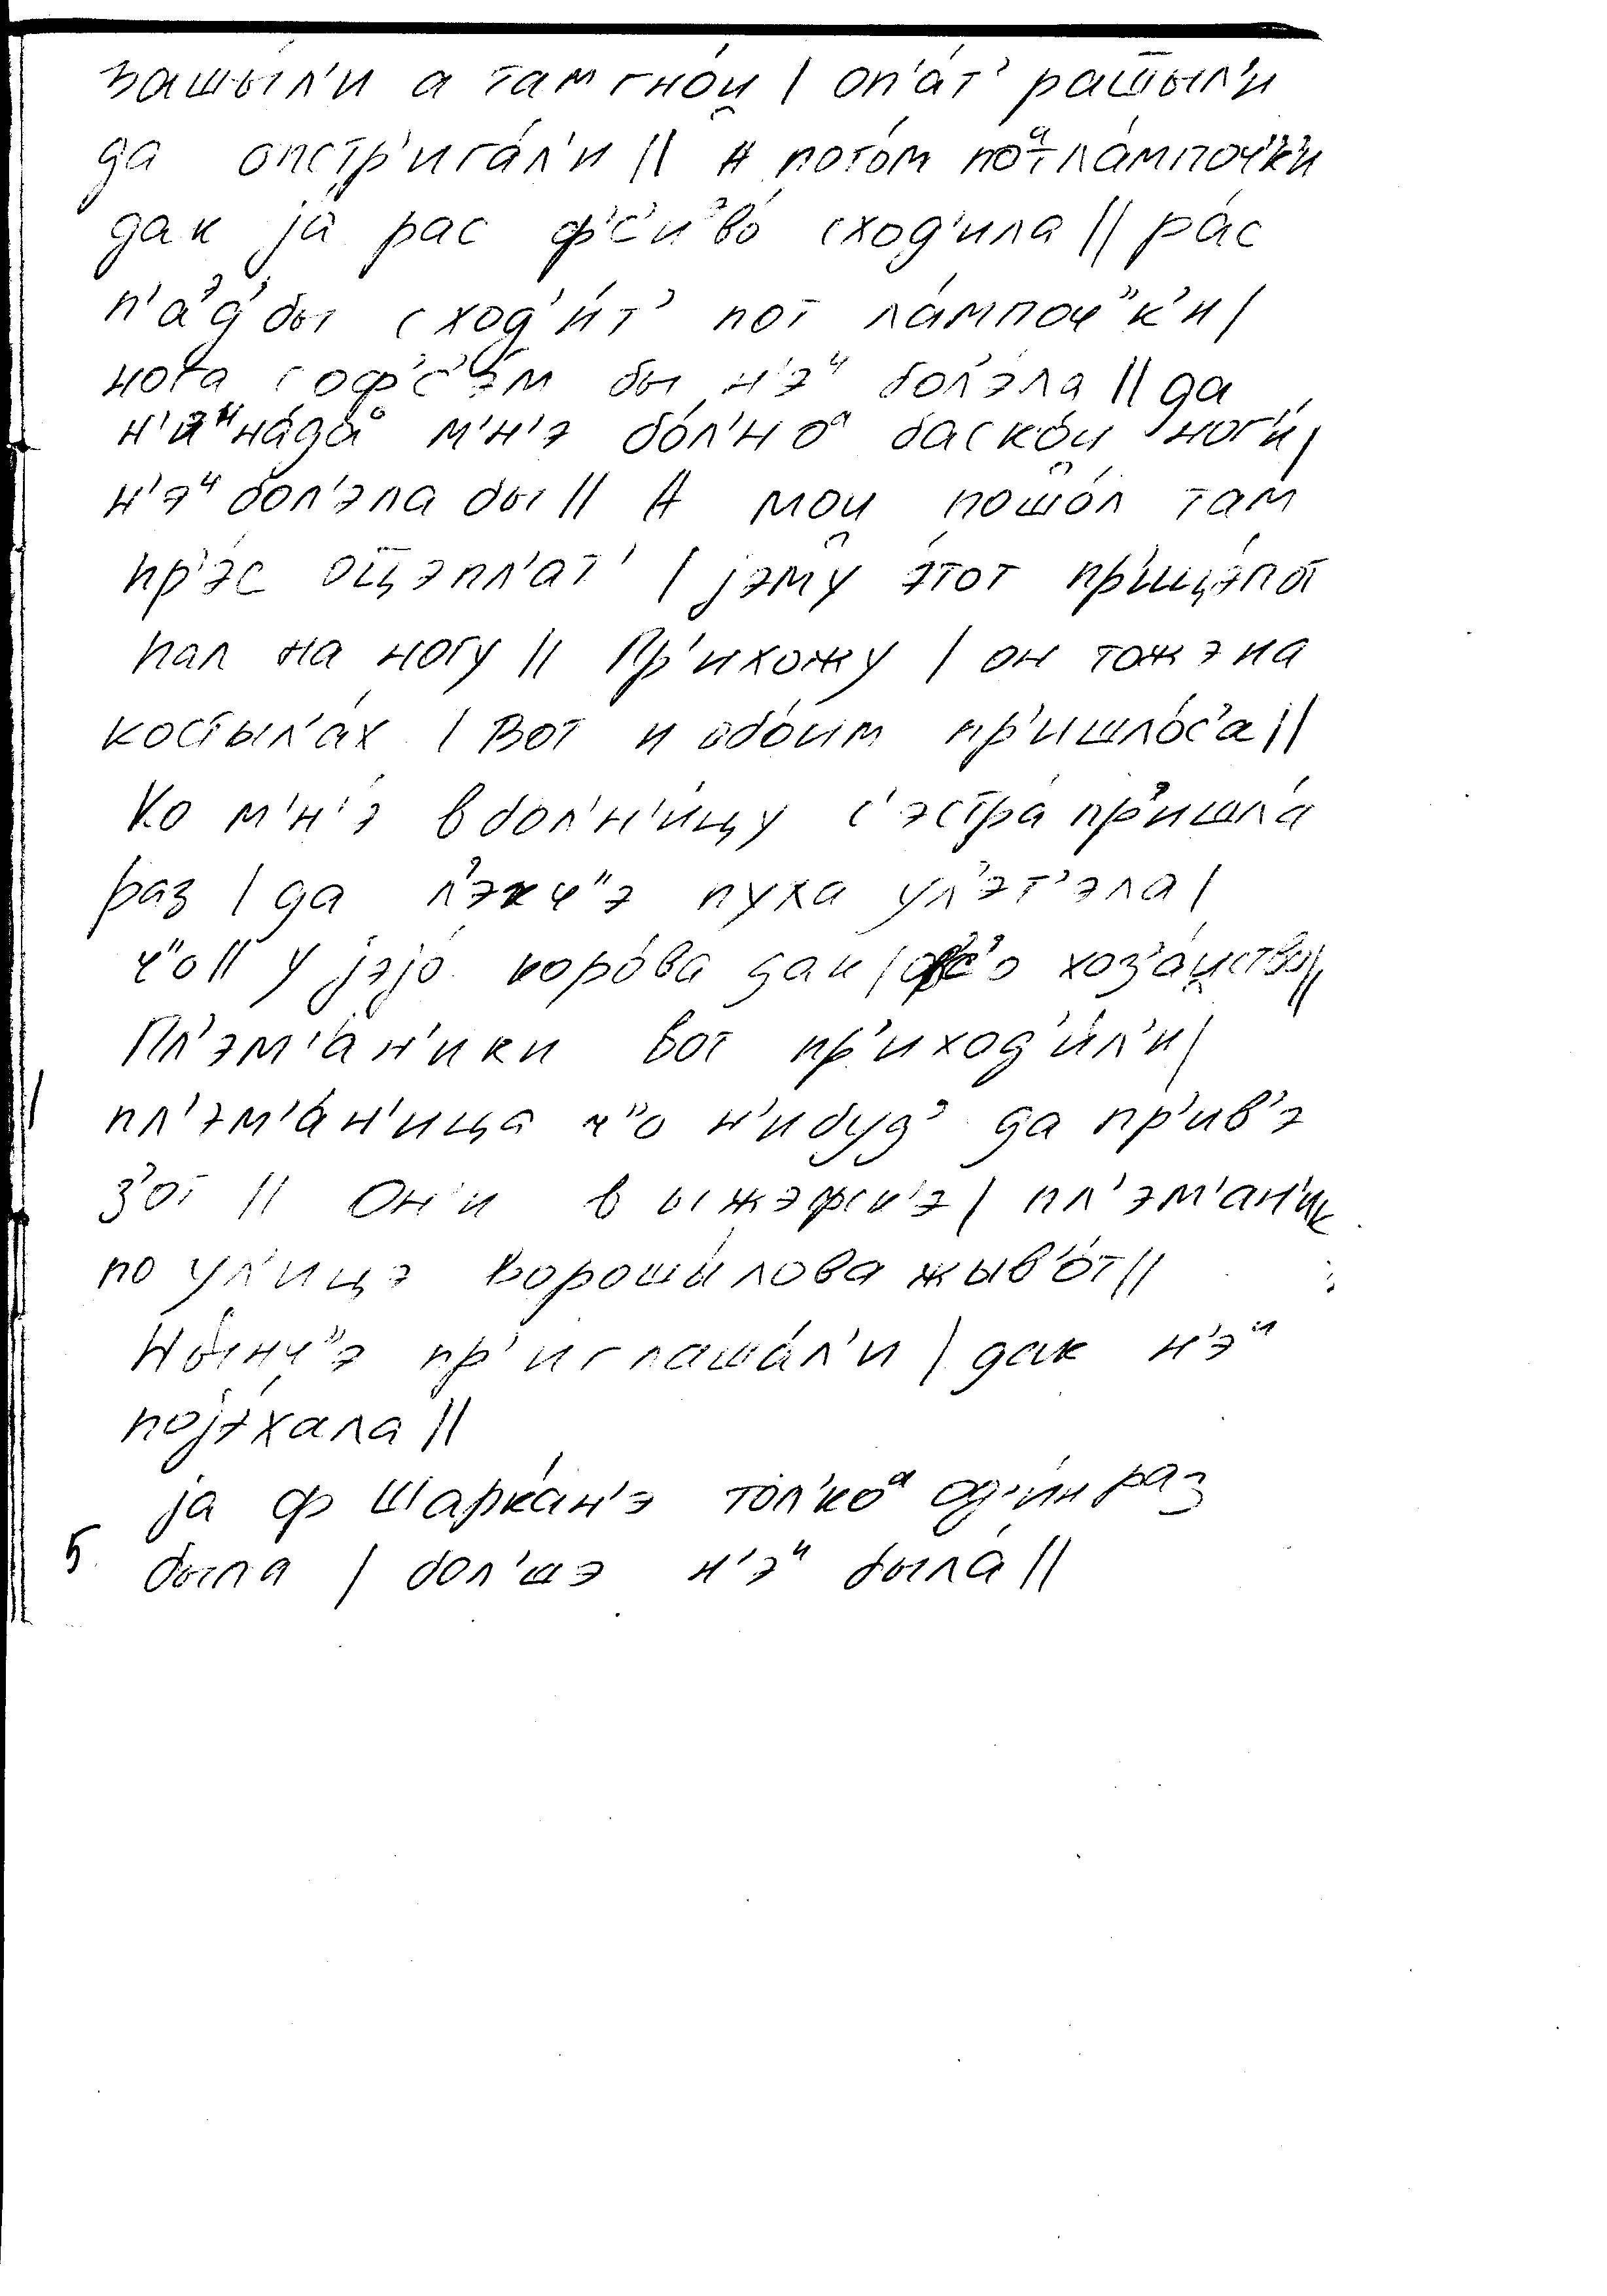 зашы́л'и а там гно́и̯ | оп'а́т' рашты́л'и
да опстр'ига́л'и || А пото́м поᵃт ла́мпоч"к'и
дак ја́ рас ф'с'и³во́ сход'ила || ра́с
п'а³д' бы сход'и́т' пот ла́мпоч"к'и |
нога соф'с'э́м бы н'эᶦ бол'э́ла || да
н'эᶦна́даº м'н'э бо́л'ноᵃ баско́и̯ ног'и́ |
н'эᶦ бол'эла бы || А мои̯ пошо́л там
пр'э́с отцэпл'ат' | јэму́ э́тот пр'ицэ́пот
пал на ногу || Пр'ихожу | он тожэ на
костыл'а́х | Вот и обо́им пр'ишло́с'а ||
Ко м'н'э́ в бол'н'и́цу с'эстра́ пр'ишла́
раз | да л'экч"э пуха ул'эт'эла |
ч"о || У јэјо́ коро́ва дак | фс'о хоз'а́и̯ство ||
Пл'эм'а́н'ики вот пр'иход'и́л'и |
пл'эм'а́н'ица ч"о н'ибуд' да пр'ив'э
з'от || Он'и в ыжэфск'э | пл'эм'ан'ик
по ул'ицэ Вороши́лова жыв'о́т ||
Ны́нч"э пр'иглаша́л'и | дак н'эᶦ
појэ́хала ||
ја ф Шарка́н'э тол'коᵃ од'и́н раз
5. была | бол'шэ н'эᶦ была́ ||